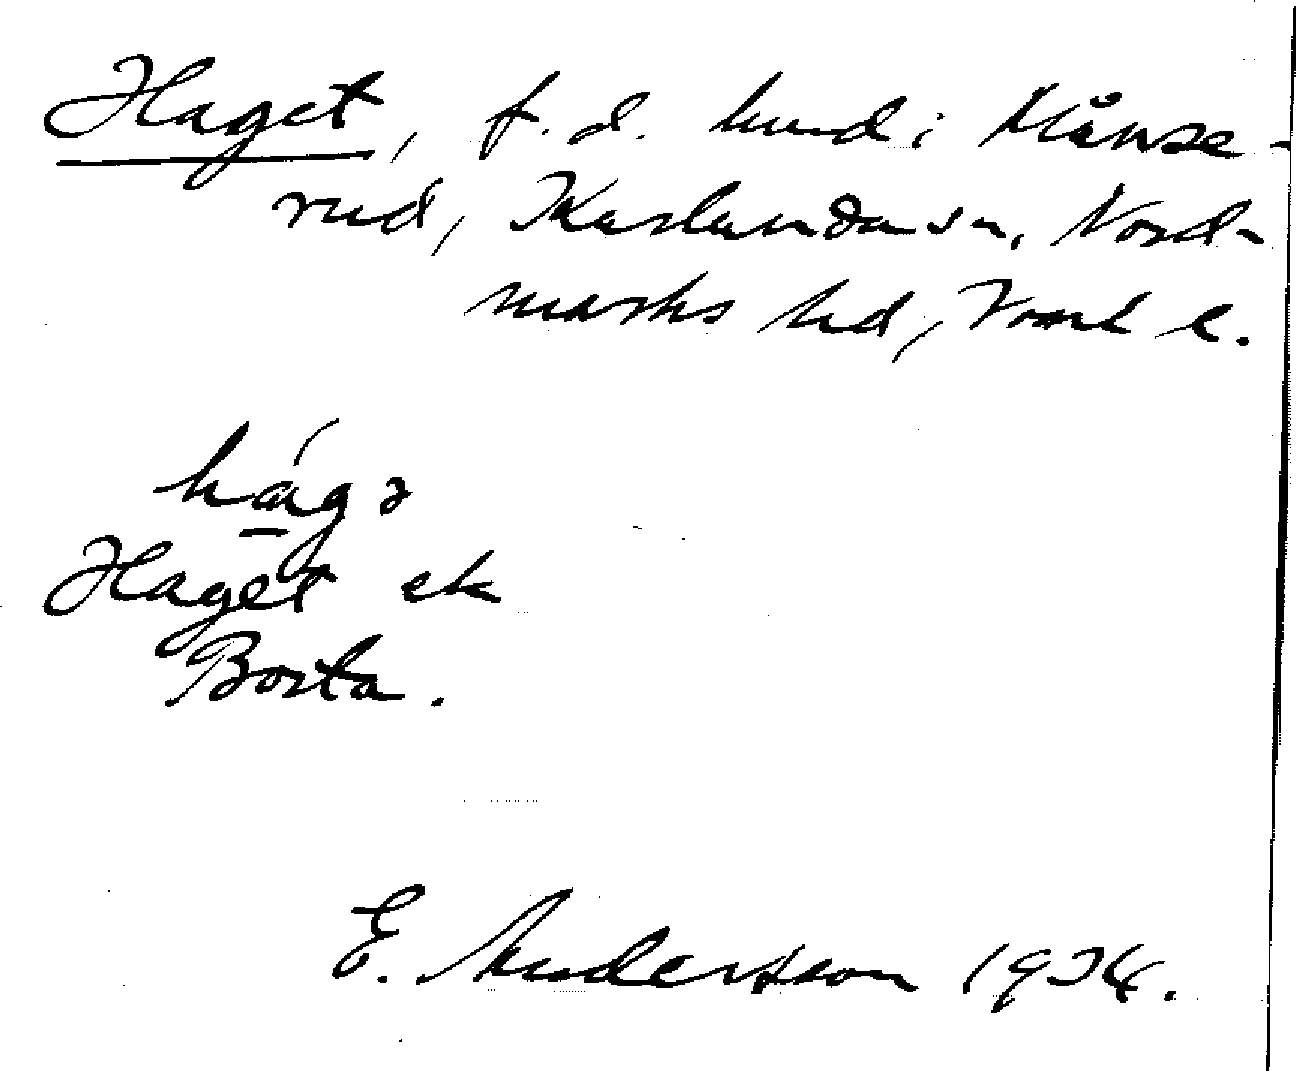 Haget, f. d. hmd i Månse-
rud, Karlanda sn, Nord-
marks hd, Vrml l.
hág
Haget ek
Borta.
E. Andersson 1924.